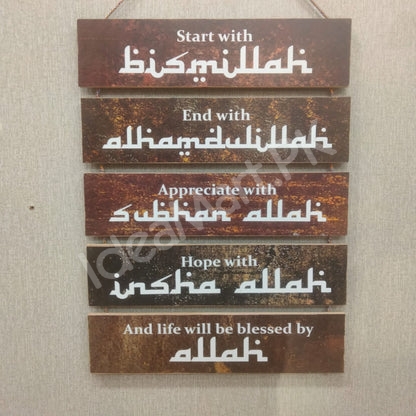 Start with
bismillah
End with
alhamdulillah
Appreciate with
subhan allah
Hope with
insha allah
And life will be blessed by
allah
IdealMart.PK